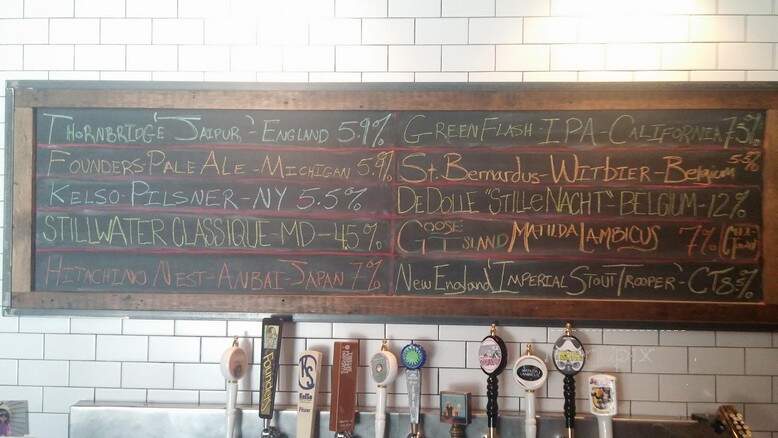 THORNBRIDGE 'JAIPUR' - ENGLAND 5.9%
FOUNDERS PALE ALE - MICHIGAN 5.9%
KELSO PILSNER - NY 5.5%
STILLWATER CLASSIQUE - MD - 4.5%
HITACHINO NEST - ANBAI - JAPAN 7%
GREEN FLASH - IPA - CALIFORNIA 7.5%
ST. BERNARDUS - WITBIER - BELGIUM 5.5%
DE DOLLE "STILLE NACHT" - BELGIUM - 12%
GOOSE ISLAND MATILDA LAMBICUS 7%
NEW ENGLAND 'IMPERIAL STOUT TROOPER' - CT 8.5%
FOUNDERS
KS